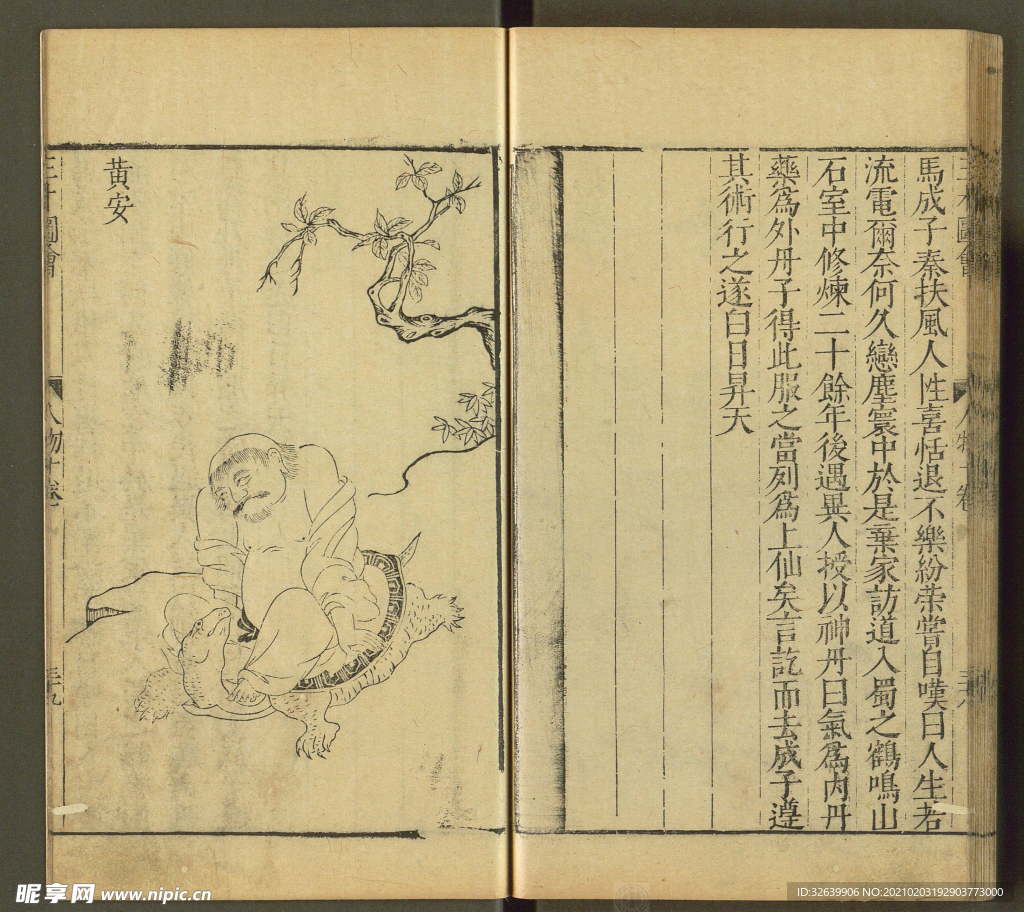 馬成子秦扶風人性喜恬退不樂紛荣嘗自嘆曰人生若
流電爾奈何久戀塵寰中於是棄家訪道入蜀之鶴鳴山
石室中修煉二十餘年後遇異人授以神丹曰氣為内丹
藥為外丹子得此服之當列為上仙矣言訖而去成子遵
其術行之遂白日昇天
黃安
人物十卷
三九
昵享网 www.nipic.cn
ID:32639906 NO:20210203192903773000